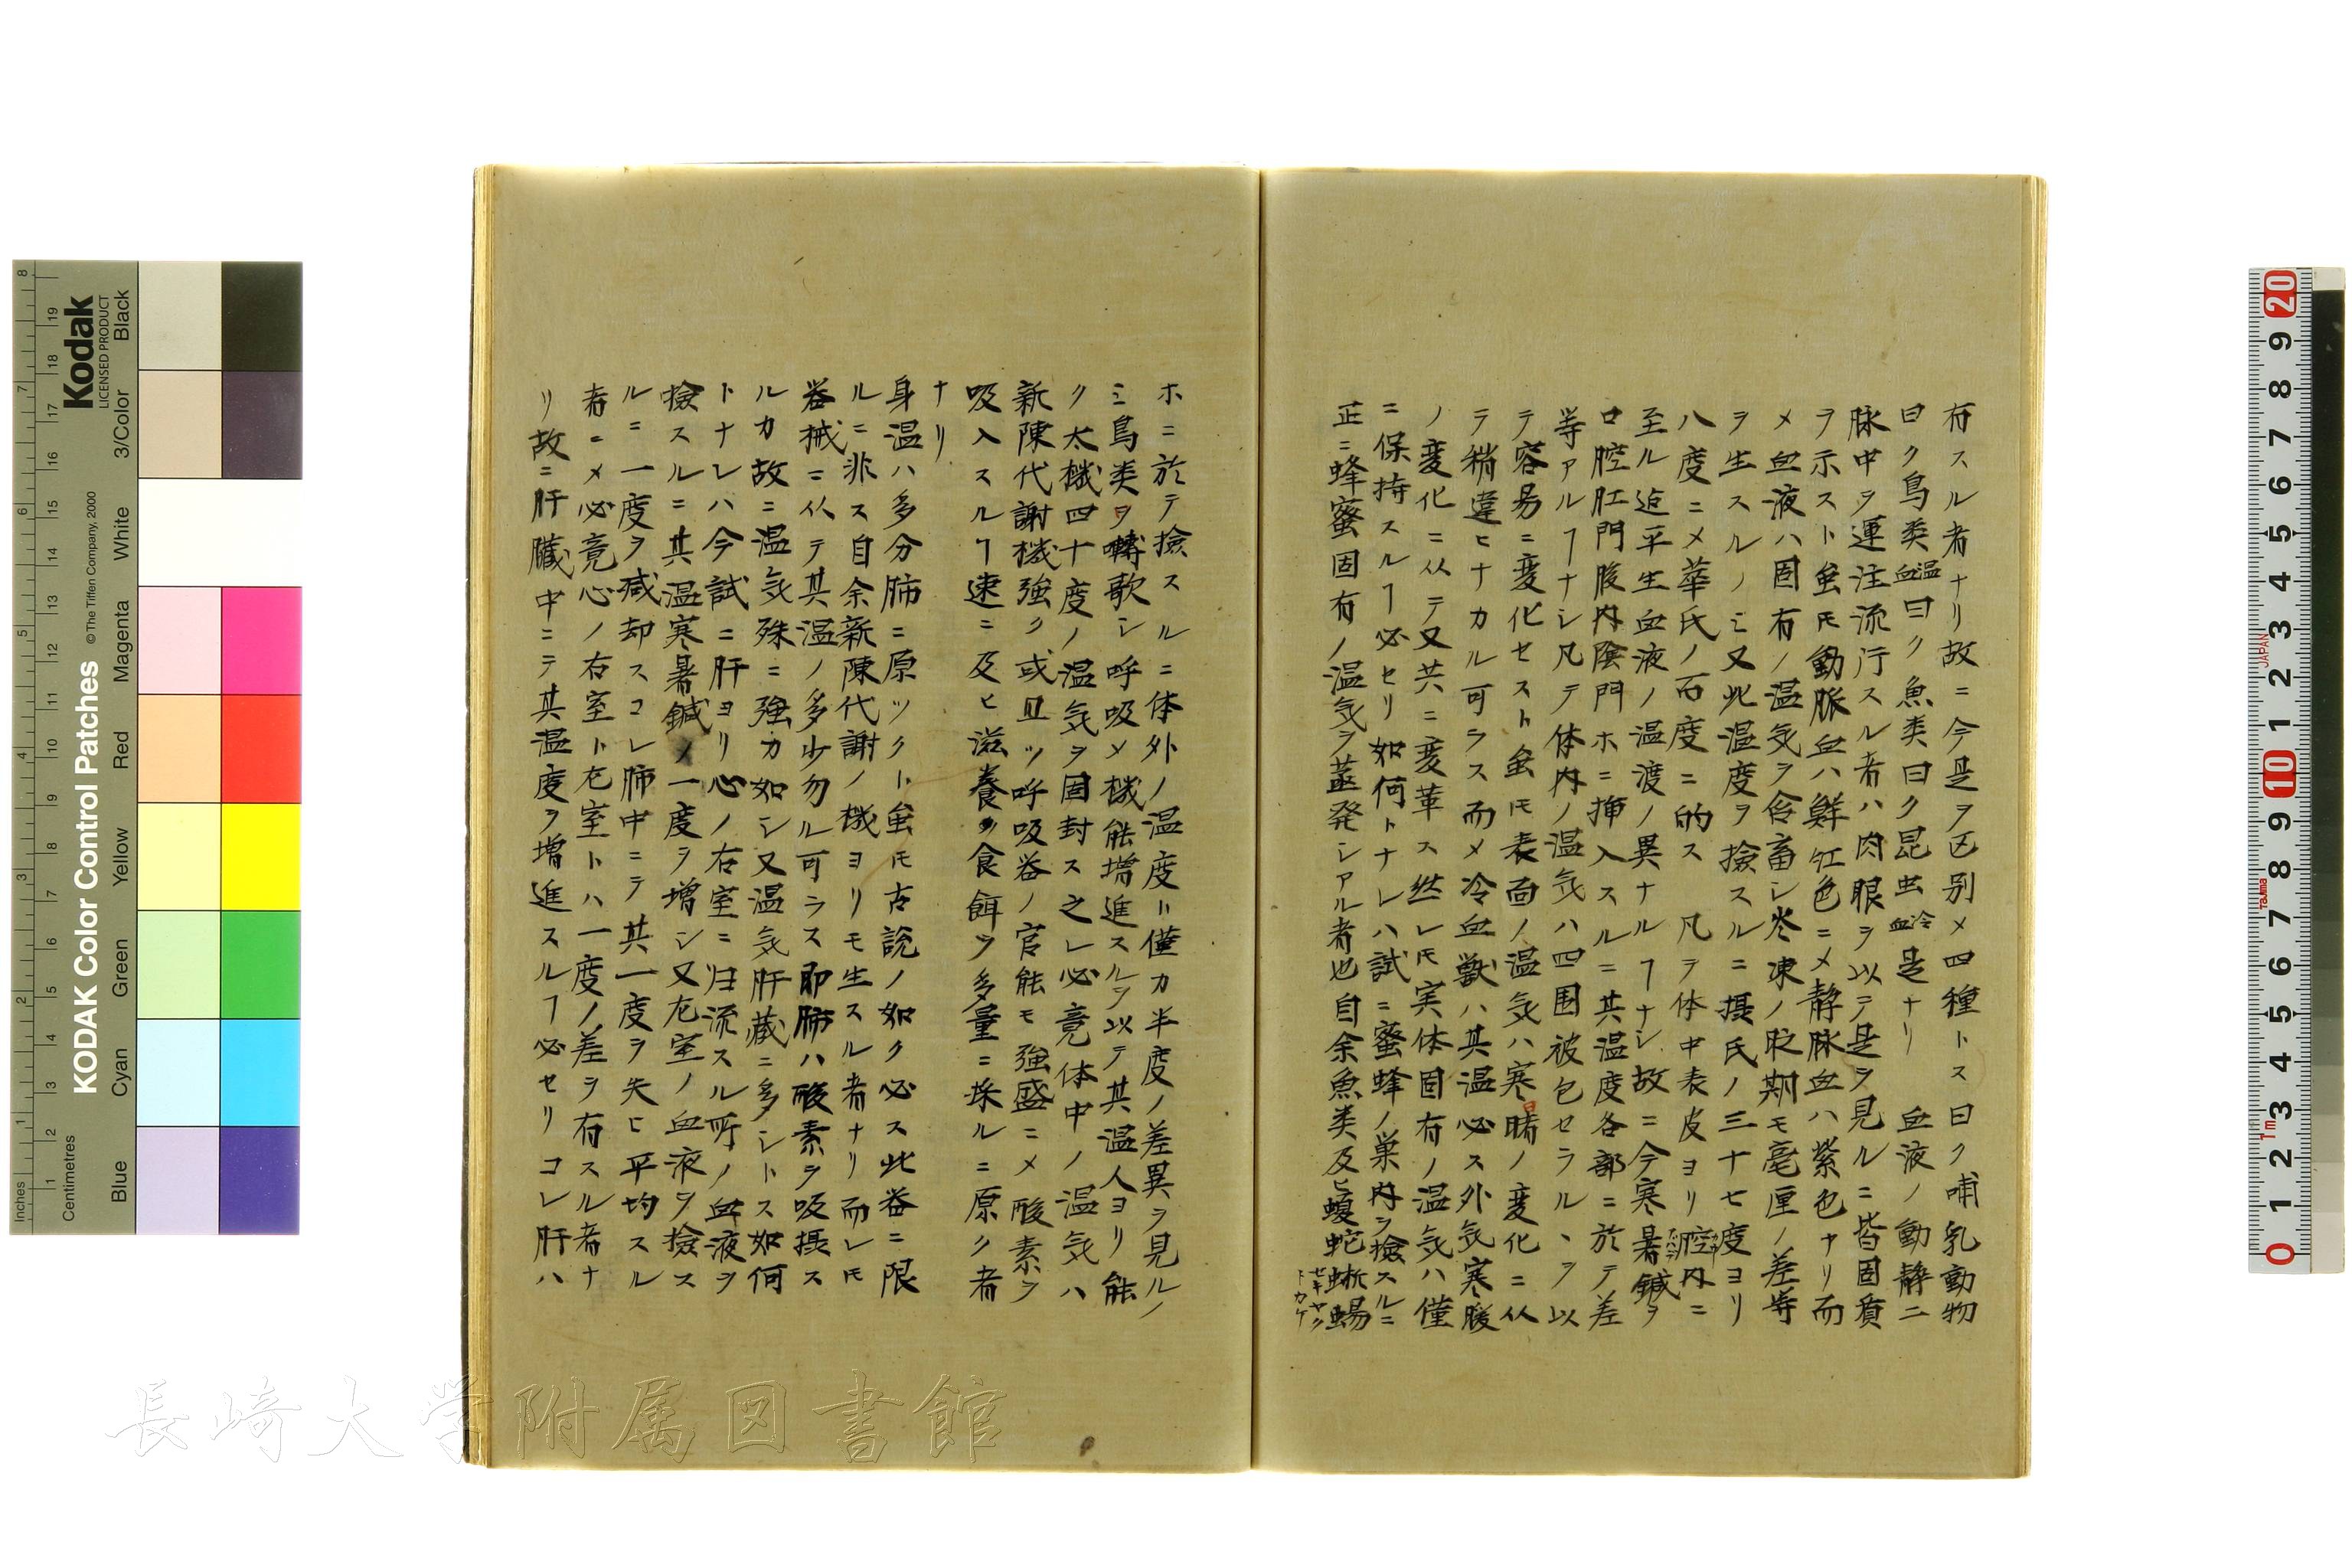 有スル者ナリ故ニ今是ヲ区別メ四種トス曰ク哺乳動物
曰ク鳥类温血曰ク魚类曰ク昆虫冷血是ナリ 血液ノ動静ニ
脉中ヲ運注流行スル者ハ肉眼ヲ以テ是ヲ見ルニ皆固質
ヲ示スト虽𪜈動脈血ハ鮮紅色ニメ静脉血ハ紫色ナリ而
メ血液ハ固有ノ温気ヲ含畜シ寒凍ノ時期モ毫厘ノ差等
ヲ生スルノミ又此温度ヲ撿スルニ摂氏ノ三十七度ヨリ
八度ニメ華氏ノ百度ニ的ス 凡テ体中表皮ヨリ腔内ニ
至ル迠平生血液ノ温渡ノ異ナルヿナシ故ニ今寒暑鍼ヲ
口腔肛門腹内陰門ホニ挿入スルニ其温度各部ニ於テ差
等アルヿナシ凡テ体内ノ温気ハ四囲被包セラルヽヲ以
テ容易ニ変化セスト虽𪜈表面ノ温気ハ寒晴ノ変化ニ从
テ稍違ヒナカル可ラス而メ冷血獣ハ其温必ス外気寒暖
ノ変化ニ从テ又共ニ変革ス然レ𪜈実体固有ノ温気ハ僅
ニ保持スルヿ必セリ如何トナレハ試ニ蜜蜂ノ巣内ヲ撿スルニ
正ニ蜂蜜固有ノ温気ヲ蒸発シアル者也自余魚类及ヒ蝮蛇蜥蜴
セキヤク
トカケ
ホニ於テ撿スルニ体外ノ温度ヨリ僅カ半度ノ差異ヲ見ルノ
ミ鳥类ヲ轉歌シ呼吸メ機能増進スルヲ以テ其温人ヨリ能
ク太檥四十度ノ温気ヲ固封ス之レ必竟体中ノ温気ハ
新陳代謝機強ク或且ツ呼吸器ノ官能モ強盛ニメ酸素ヲ
吸入スルヿ速ニ及ヒ滋養ノ食餌ヲ多量ニ採ルニ原ク者
ナリ
身温ハ多分肺ニ原ツクト虽𪜈古説ノ如ク必ス此器ニ限
ルニ非ス自余新陳代謝ノ機ヨリモ生スル者ナリ而レ𪜈
器械ニ从テ其温ノ多少勿ル可ラス即肺ハ酸素ヲ吸摂ス
ルカ故ニ温気殊ニ強カ如シ又温気肝蔵ニ多シトス如何
トナレハ今試ニ肝ヨリ心ノ右室ニ归流スル所ノ血液ヲ
撿スルニ其温寒暑鍼ノ一度ヲ増シ又左室ノ血液ヲ撿ス
ルニ一度ヲ减却スコレ肺中ニテ其一度ヲ失ヒ平均スル
者ニメ必竟心ノ右室ト左室トハ一度ノ差ヲ有スル者ナ
リ故ニ肝臓中ニテ其温度ヲ増進スルヿ必セリコレ肝ハ